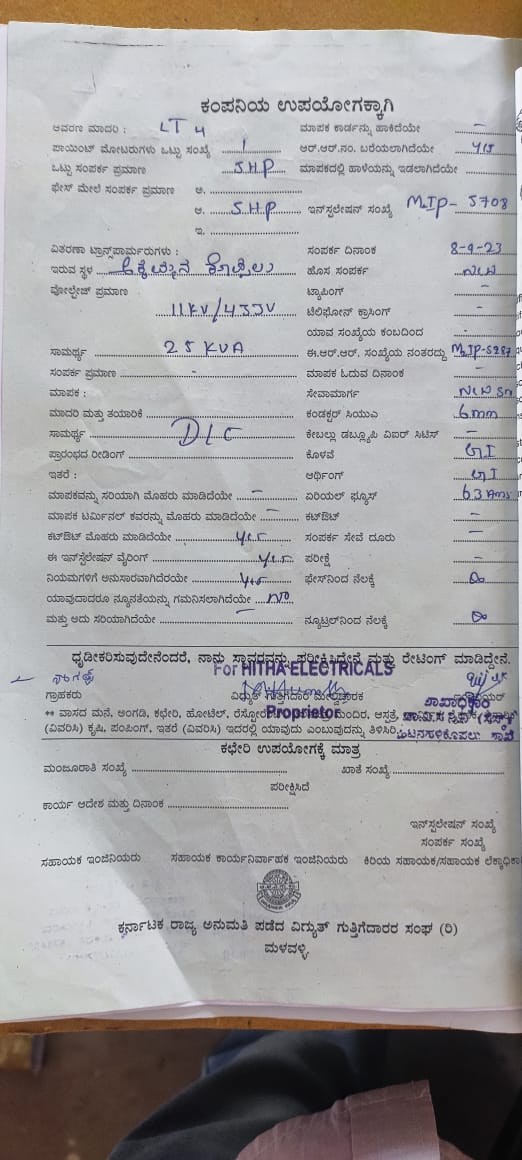 ಕಂಪನಿಯ ಉಪಯೋಗಕ್ಕಾಗಿ
ಆವರಣ ಮಾದರಿ : LT 4 ಮಾಪಕ ಕಾರ್ಡನ್ನು ಹಾಕಿದೆಯೇ -
ಪಾಯಿಂಟ್ ಮೋಟರುಗಳು ಒಟ್ಟು ಸಂಖ್ಯೆ 1 ಆರ್.ಆರ್.ನಂ. ಬರೆಯಲಾಗಿದೆಯೇ yes
ಒಟ್ಟು ಸಂಪರ್ಕ ಪ್ರಮಾಣ 5HP ಮಾಪಕದಲ್ಲಿ ಹಾಳೆಯನ್ನು ಇಡಲಾಗಿದೆಯೇ
ಫೇಸ್ ಮೇಲೆ ಸಂಪರ್ಕ ಪ್ರಮಾಣ ಅ.
ಆ. 5HP ಇನ್‌ಸ್ಟಲೇಷನ್ ಸಂಖ್ಯೆ MIP- 5708
ಇ.
ವಿತರಣಾ ಟ್ರಾನ್ಸ್‌ಪಾರ್ಮರುಗಳು : ಸಂಪರ್ಕ ದಿನಾಂಕ 8-9-23
ಇರುವ ಸ್ಥಳ ಹೊಸ ಸಂಪರ್ಕ New
ವೋಲ್ಟೇಜ್ ಪ್ರಮಾಣ ಟ್ಯಾಪಿಂಗ್ -
11KV/433V ಟೆಲಿಫೋನ್ ಕ್ರಾಸಿಂಗ್ -
ಯಾವ ಸಂಖ್ಯೆಯ ಕಂಬದಿಂದ -
ಸಾಮರ್ಥ್ಯ 25 KVA ಈ.ಆರ್.ಆರ್. ಸಂಖ್ಯೆಯ ನಂತರದ್ದು MIP-5287
ಸಂಪರ್ಕ ಪ್ರಮಾಣ - ಮಾಪಕ ಓದುವ ದಿನಾಂಕ -
ಮಾಪಕ : ಸೇವಾಮಾರ್ಗ New Sn
ಮಾದರಿ ಮತ್ತು ತಯಾರಿಕೆ ಕಂಡಕ್ಟರ್ ಸಿಯುಎ 6mm
ಸಾಮರ್ಥ್ಯ DLC ಕೇಬಲ್ಲು ಡಬ್ಲ್ಯೂಪಿ ವಿಐರ್ ಸಿಟಿಸ್ -
ಪ್ರಾರಂಭದ ರೀಡಿಂಗ್ ಕೊಳವೆ GI
ಇತರೆ : ಆರ್ಥಿಂಗ್ GI
ಮಾಪಕವನ್ನು ಸರಿಯಾಗಿ ಮೊಹರು ಮಾಡಿದೆಯೇ - ಏರಿಯಲ್ ಫ್ಯೂಸ್ 63 Ams
ಮಾಪಕ ಟರ್ಮಿನಲ್ ಕವರನ್ನು ಮೊಹರು ಮಾಡಿದೆಯೇ - ಕಟ್‌ಔಟ್ -
ಕಟ್‌ಔಟ್ ಮೊಹರು ಮಾಡಿದೆಯೇ yes ಸಂಪರ್ಕ ಸೇವೆ ದೂರು -
ಈ ಇನ್‌ಸ್ಟಲೇಷನ್ ವೈರಿಂಗ್ yes ಪರೀಕ್ಷೆ -
ನಿಯಮಗಳಿಗೆ ಅನುಸಾರವಾಗಿದೆರಯೇ yes ಫೇಸ್‌ನಿಂದ ನೆಲಕ್ಕೆ ∞
ಯಾವುದಾದರೂ ನ್ಯೂನತೆಯನ್ನು ಗಮನಿಸಲಾಗಿದೆಯೇ no
ಮತ್ತು ಅದು ಸರಿಯಾಗಿದೆಯೇ - ನ್ಯೂಟ್ರಲ್‌ನಿಂದ ನೆಲಕ್ಕೆ ∞
ಧೃಡೀಕರಿಸುವುದೇನೆಂದರೆ, ನಾನು ಸ್ಥಾವರವನ್ನು ಪರೀಕ್ಷಿಸಿದ್ದೇನೆ ಮತ್ತು ರೇಟಿಂಗ್ ಮಾಡಿದ್ದೇನೆ.
For HITHA ELECTRICALS
ಗ್ರಾಹಕರು ವಿದ್ಯುತ್ ಗುತ್ತಿಗೆದಾರ ಮೇಲ್ವಿಚಾರಕ ಶಾಖಾಧಿಕಾರಿ
Proprietor
** ವಾಸದ ಮನೆ, ಅಂಗಡಿ, ಕಛೇರಿ, ಹೋಟೆಲ್, ಮಂದಿರ, ಆಸ್ಪತ್ರೆ
(ವಿವರಿಸಿ) ಕೃಷಿ, ಪಂಪಿಂಗ್, ಇತರೆ (ವಿವರಿಸಿ) ಇದರಲ್ಲಿ ಯಾವುದು ಎಂಬುವುದನ್ನು ತಿಳಿಸಿರಿ.
ಕಛೇರಿ ಉಪಯೋಗಕ್ಕೆ ಮಾತ್ರ
ಮಂಜೂರಾತಿ ಸಂಖ್ಯೆ ಖಾತೆ ಸಂಖ್ಯೆ
ಪರೀಕ್ಷಿಸಿದೆ
ಕಾರ್ಯ ಆದೇಶ ಮತ್ತು ದಿನಾಂಕ
ಇನ್‌ಸ್ಟಲೇಷನ್ ಸಂಖ್ಯೆ
ಸಂಪರ್ಕ ಸಂಖ್ಯೆ
ಸಹಾಯಕ ಇಂಜಿನಿಯರು ಸಹಾಯಕ ಕಾರ್ಯನಿರ್ವಾಹಕ ಇಂಜಿನಿಯರು ಕಿರಿಯ ಸಹಾಯಕ/ಸಹಾಯಕ ಲೆಕ್ಕಾಧಿಕಾರಿ
ಕರ್ನಾಟಕ ರಾಜ್ಯ ಅನುಮತಿ ಪಡೆದ ವಿದ್ಯುತ್ ಗುತ್ತಿಗೆದಾರರ ಸಂಘ (ರಿ)
ಮಳವಳ್ಳಿ.